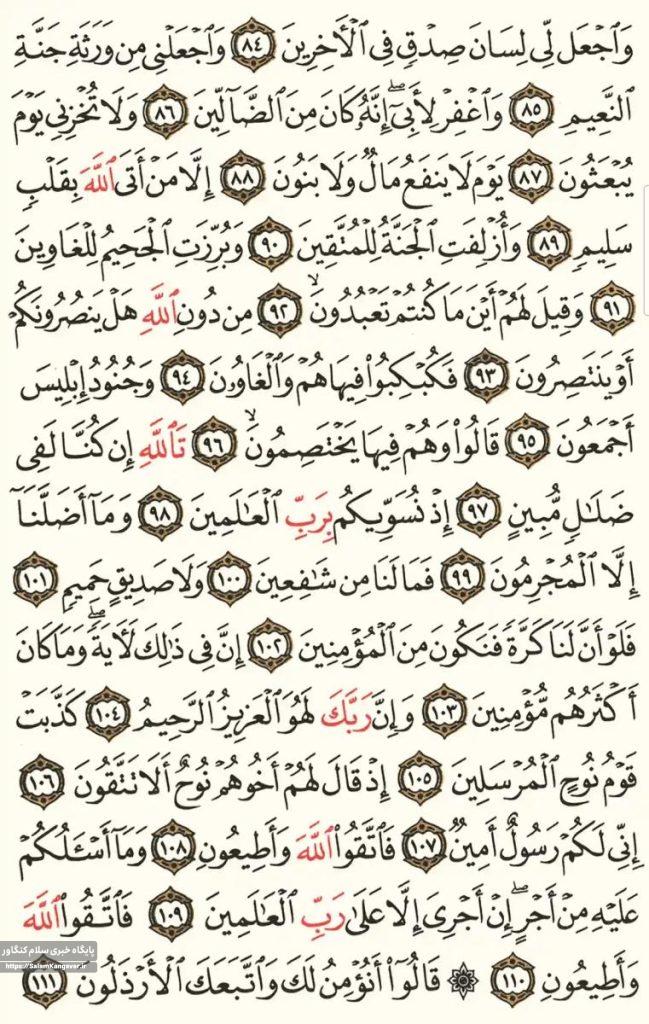 وَٱجْعَل لِّي لِسَانَ صِدْقٍ فِي ٱلْأَخِرِينَ ٨٤ وَٱجْعَلْنِي مِن وَرَثَةِ جَنَّةِ
ٱلنَّعِيمِ ٨٥ وَٱغْفِرْ لِأَبِيٓ ۖ إِنَّهُۥ كَانَ مِنَ ٱلضَّآلِّينَ ٨٦ وَلَا تُخْزِنِي يَوْمَ
يُبْعَثُونَ ٨٧ يَوْمَ لَا يَنفَعُ مَالٌ وَلَا بَنُونَ ٨٨ إِلَّا مَنْ أَتَى ٱللَّهَ بِقَلْبٍ
سَلِيمٍ ٨٩ وَأُزْلِفَتِ ٱلْجَنَّةُ لِلْمُتَّقِينَ ٩٠ وَبُرِّزَتِ ٱلْجَحِيمُ لِلْغَاوِينَ
٩١ وَقِيلَ لَهُمْ أَيْنَ مَا كُنتُمْ تَعْبُدُونَ ۙ ٩٢ مِن دُونِ ٱللَّهِ هَلْ يَنصُرُونَكُمْ
أَوْ يَنتَصِرُونَ ٩٣ فَكُبْكِبُوا۟ فِيهَا هُمْ وَٱلْغَاوُۥنَ ٩٤ وَجُنُودُ إِبْلِيسَ
أَجْمَعُونَ ٩٥ قَالُوا۟ وَهُمْ فِيهَا يَخْتَصِمُونَ ۙ ٩٦ تَٱللَّهِ إِن كُنَّا لَفِي
ضَلَٰلٍ مُّبِينٍ ٩٧ إِذْ نُسَوِّيكُم بِرَبِّ ٱلْعَٰلَمِينَ ٩٨ وَمَآ أَضَلَّنَآ
إِلَّا ٱلْمُجْرِمُونَ ٩٩ فَمَا لَنَا مِن شَٰفِعِينَ ١٠٠ وَلَا صَدِيقٍ حَمِيمٍ ١٠١
فَلَوْ أَنَّ لَنَا كَرَّةً فَنَكُونَ مِنَ ٱلْمُؤْمِنِينَ ١٠٢ إِنَّ فِي ذَٰلِكَ لَأَيَةً ۖ وَمَا كَانَ
أَكْثَرُهُم مُّؤْمِنِينَ ١٠٣ وَإِنَّ رَبَّكَ لَهُوَ ٱلْعَزِيزُ ٱلرَّحِيمُ ١٠٤ كَذَّبَتْ
قَوْمُ نُوحٍ ٱلْمُرْسَلِينَ ١٠٥ إِذْ قَالَ لَهُمْ أَخُوهُمْ نُوحٌ أَلَا تَتَّقُونَ ١٠٦
إِنِّي لَكُمْ رَسُولٌ أَمِينٌ ١٠٧ فَٱتَّقُوا۟ ٱللَّهَ وَأَطِيعُونِ ١٠٨ وَمَآ أَسْـَٔلُكُمْ
عَلَيْهِ مِنْ أَجْرٍ ۖ إِنْ أَجْرِيَ إِلَّا عَلَىٰ رَبِّ ٱلْعَٰلَمِينَ ١٠٩ فَٱتَّقُوا۟ ٱللَّهَ
وَأَطِيعُونِ ١١٠ ۞ قَالُوٓا۟ أَنُؤْمِنُ لَكَ وَٱتَّبَعَكَ ٱلْأَرْذَلُونَ ١١١
پایگاه خبری سلام کنگاور
https://SalamKangavar.ir